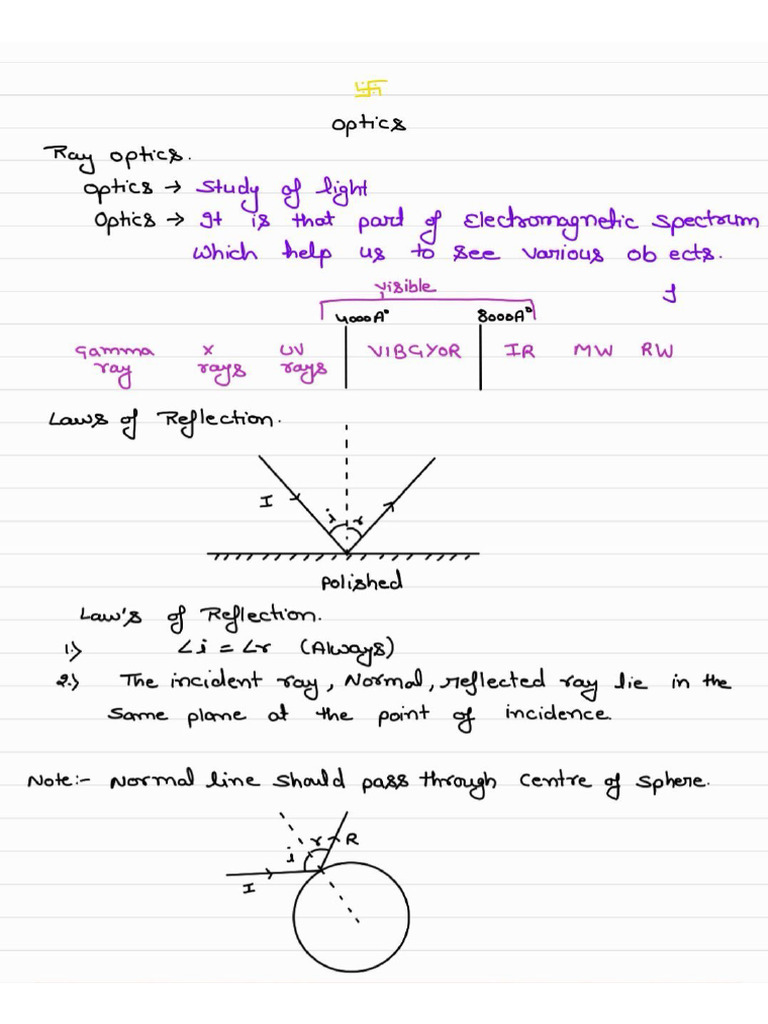 卐
Optics
Ray optics.
optics → study of light
Optics → It is that part of Electromagnetic spectrum
which help us to see various ob ects.
j
visible
4000A° 8000A°
Gamma ray X rays UV rays VIBGYOR IR MW RW
Laws of Reflection.
I i r
Polished
Law's of Reflection.
1.) ∠i = ∠r (Always)
2.) The incident ray, Normal, reflected ray lie in the
same plane at the point of incidence.
Note:- Normal line should pass through centre of sphere.
i r R
I